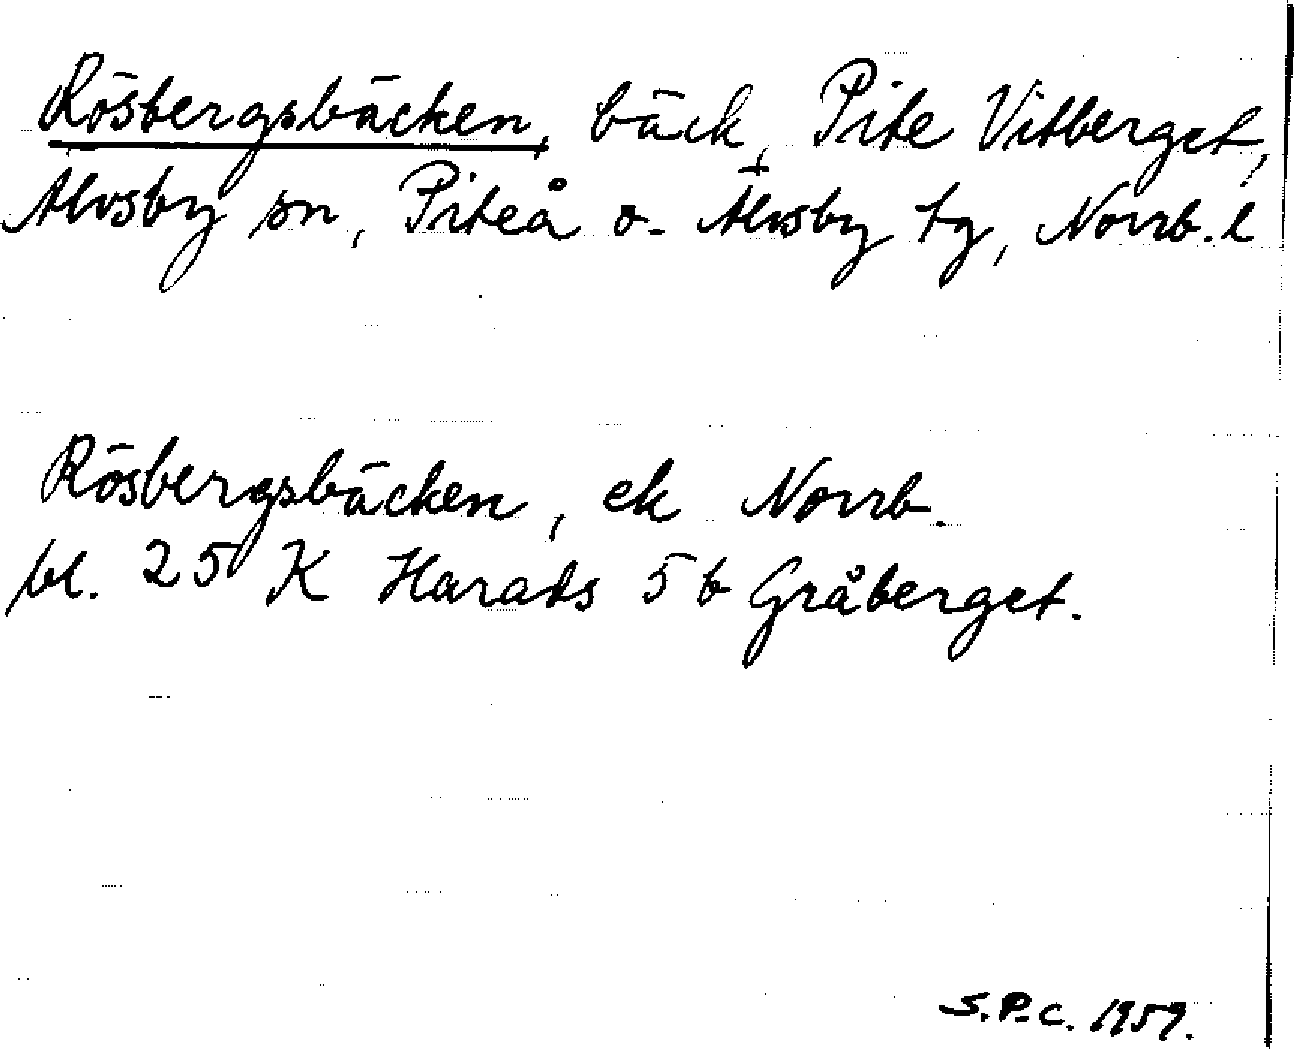 Rösbergsbäcken, bäck, Pite Vitberget,
Älvsby sn, Piteå o. Älvsby tg, Norrb. l
Rösbergsbäcken, ek Norrb.
bl. 25 K Harads 5 b Gråberget.
S.P.C. 1959.